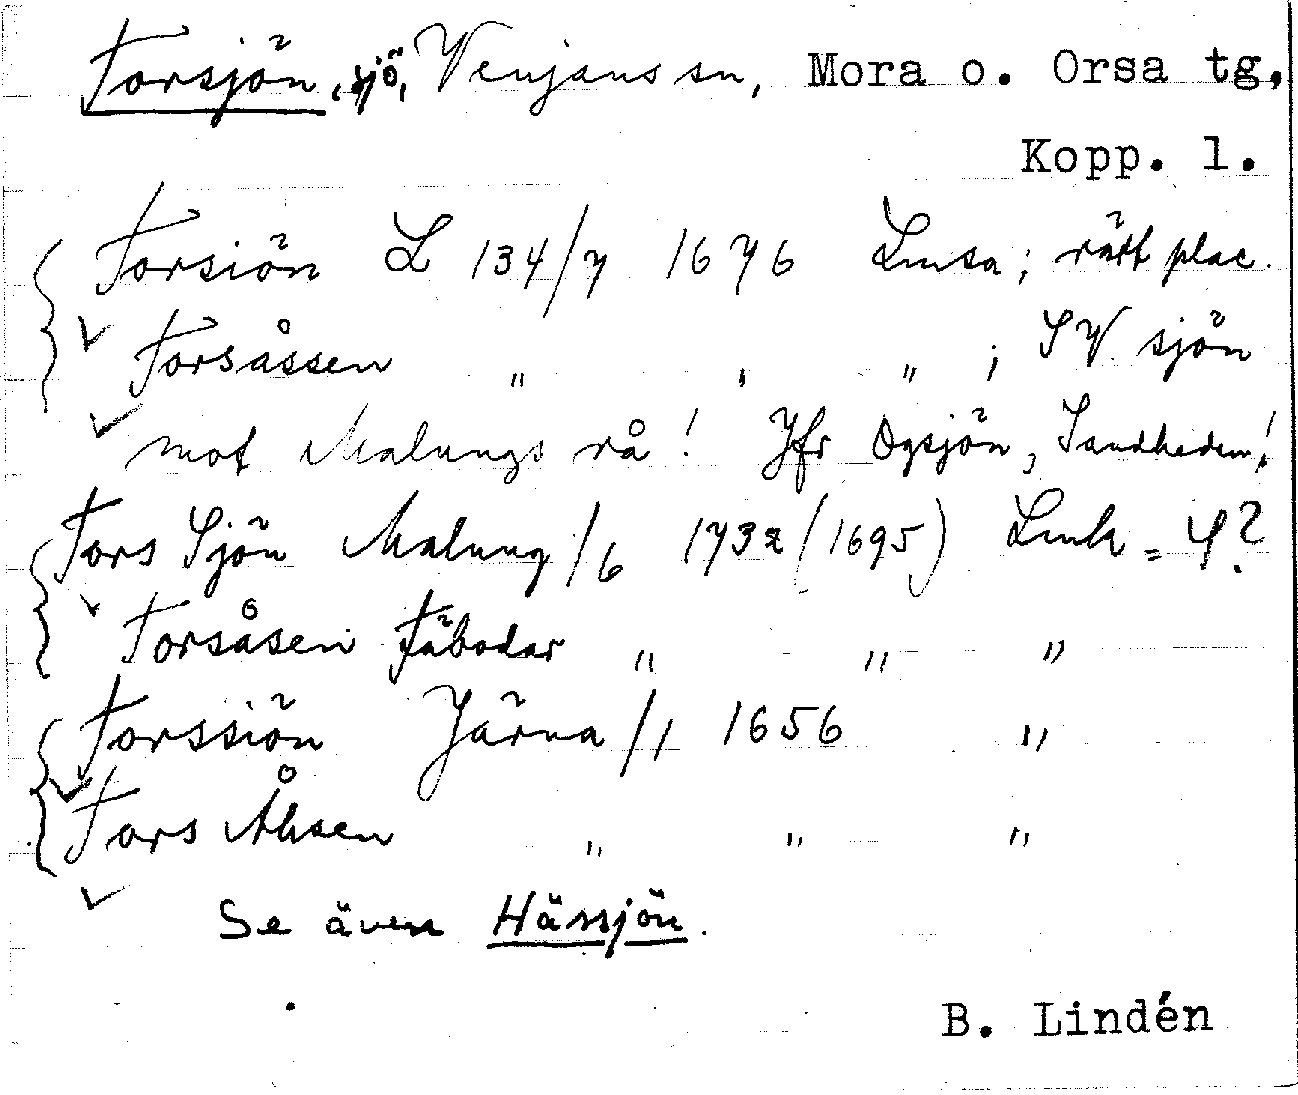 Forsjön, sjö, Venjans sn, Mora o. Orsa tg,
Kopp. l.
Forsiön L 134/7 1676 Lmsa; rätt plac.
Forsåssen " , " ; SV sjön
mot Malungs rå! Jfr Ogsjön, Sandheden!
Fors Sjön Malung/6 1732 (1695) Lmk = ?
Forsåsen Fäbodar " - " "
Forssiön Järna/1 1656 "
Fors Åhsen " " "
Se även Hässjön.
B. Lindén